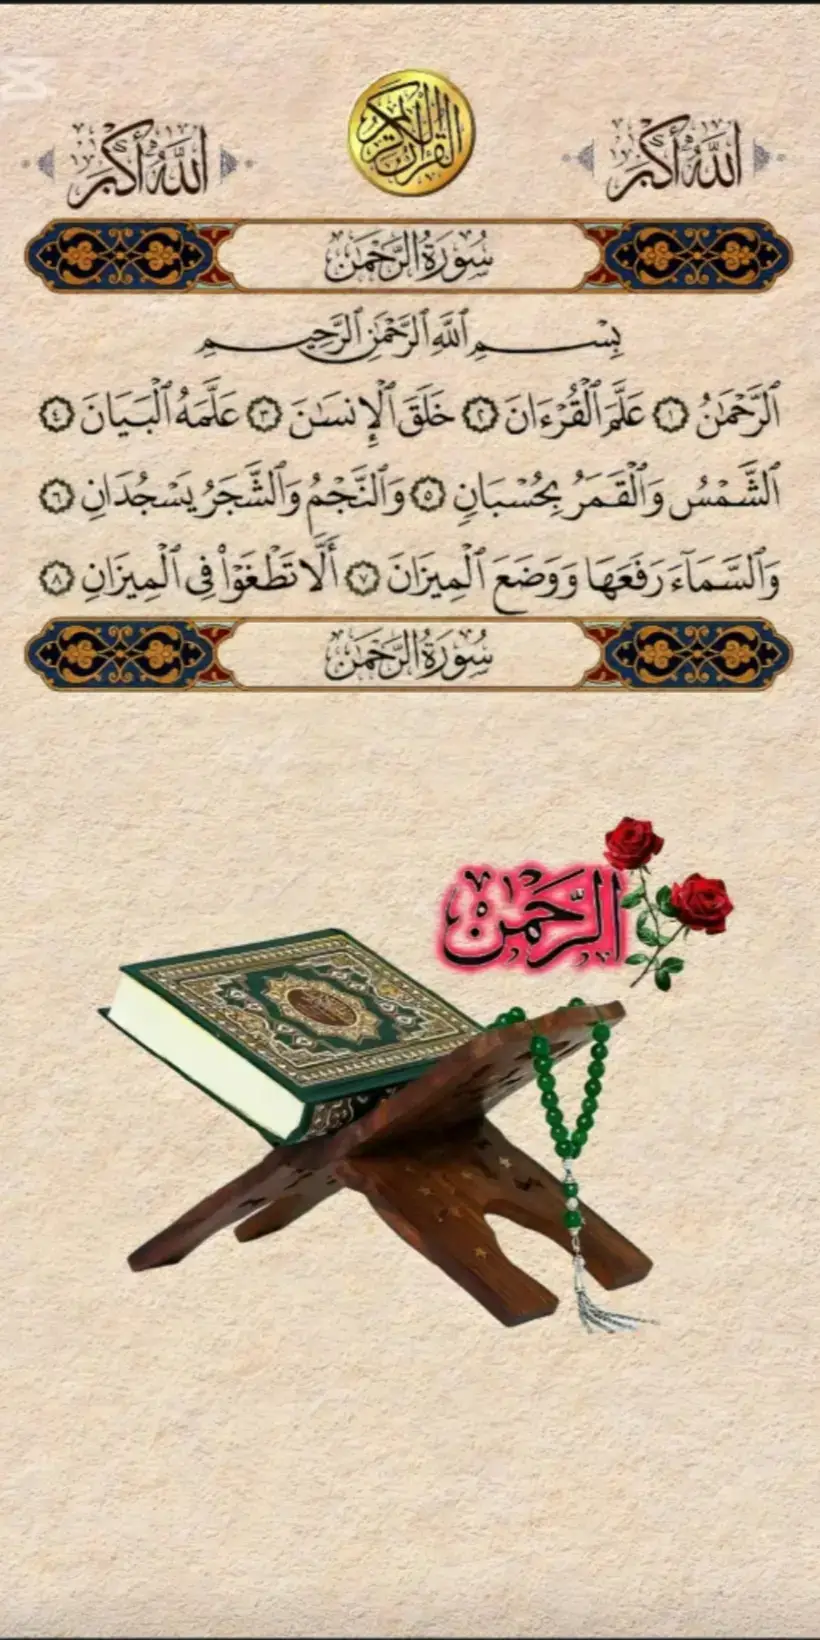 ٱللَّهُ أَكْبَر
القرآن الكريم
ٱللَّهُ أَكْبَر
سُورَةُ الرَّحْمَٰن
بِسْمِ ٱللَّهِ ٱلرَّحْمَٰنِ ٱلرَّحِيمِ
ٱلرَّحْمَٰنُ ١ عَلَّمَ ٱلْقُرْءَانَ ٢ خَلَقَ ٱلْإِنسَٰنَ ٣ عَلَّمَهُ ٱلْبَيَانَ ٤
ٱلشَّمْسُ وَٱلْقَمَرُ بِحُسْبَانٍ ٥ وَٱلنَّجْمُ وَٱلشَّجَرُ يَسْجُدَانِ ٦
وَٱلسَّمَآءَ رَفَعَهَا وَوَضَعَ ٱلْمِيزَانَ ٧ أَلَّا تَطْغَوْا۟ فِى ٱلْمِيزَانِ ٨
سُورَةُ الرَّحْمَٰن
الرَّحْمَٰن